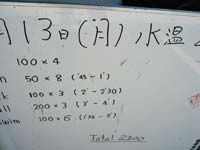 月13日(月) 水温
100×4
50×8 (45-1')
100×3 (2'-2'30)
200×3 (3'-4')
100×6
Total 2200